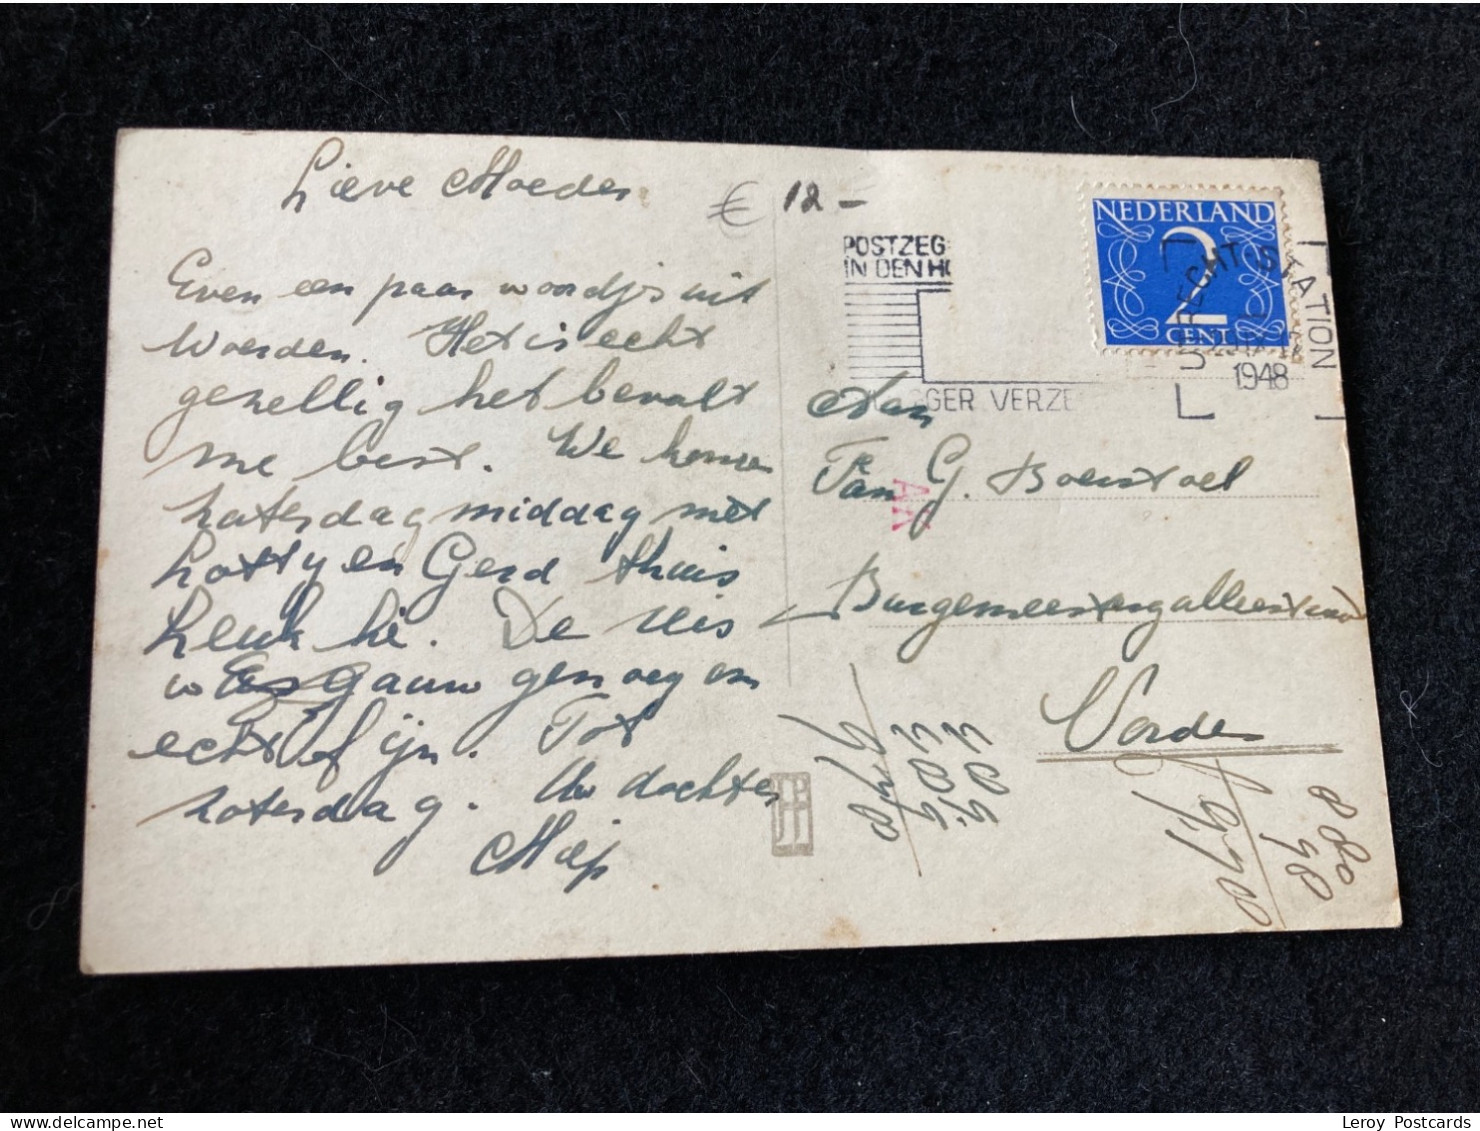 Lieve Moeder
€ 12 -
Even een paar woordjes uit
Woerden. Het is echt
gezellig het bevalt
me best. We komen
zaterdagmiddag met
Lotty en Gerd thuis
Leuk hè. De reis
was gauw genoeg om
echt fijn. Tot
zaterdag. Uw dochter
Miep
POSTZEG
IN DEN H
GGER VERZE
NEDERLAND
2
CENT
UTRECHT STATION
1948
Aan
Fam G. Boerstoel
Burgemeester
Vorden